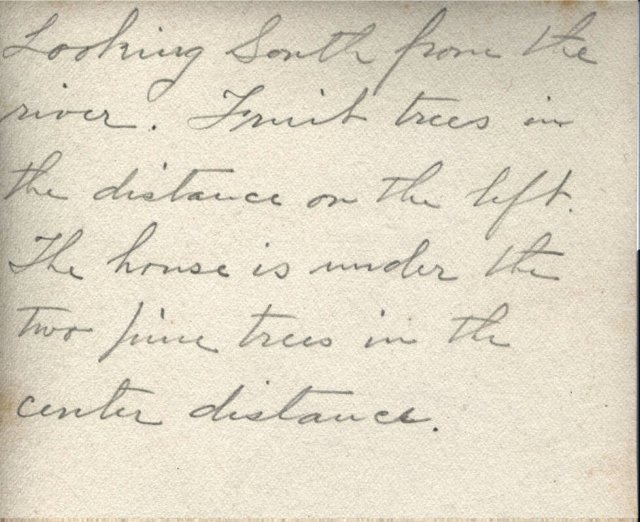 Looking South from the
river. Fruit trees in
the distance on the left.
The house is under the
two pine trees in the
center distance.